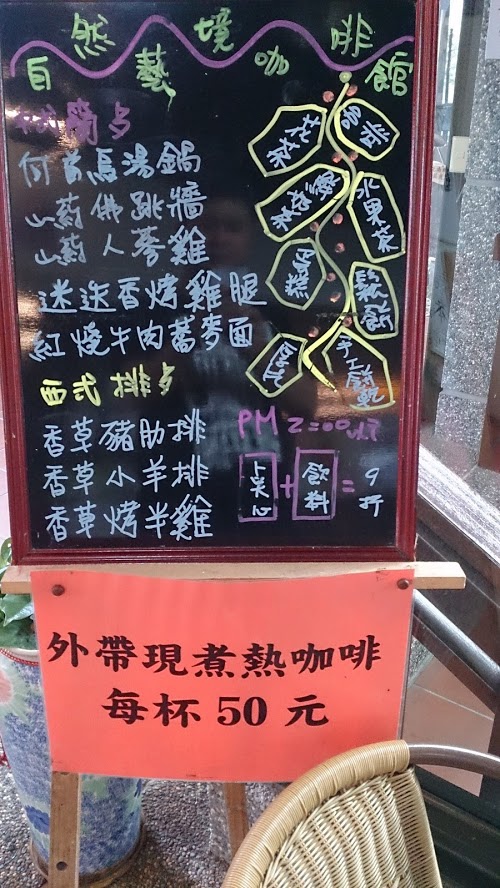 自然藝境咖啡館
簡点
何首烏湯鍋
山葯佛跳牆
山葯人蔘雞
迷迭香烤雞腿
紅燒牛肉蕎麥面
西式排点
香草豬肋排
香草小羊排
香草烤半雞
花茶
水果茶
鬆餅
手工餅乾
PM 2:00
点心+飲料=9折
外帶現煮熱咖啡
每杯 50 元